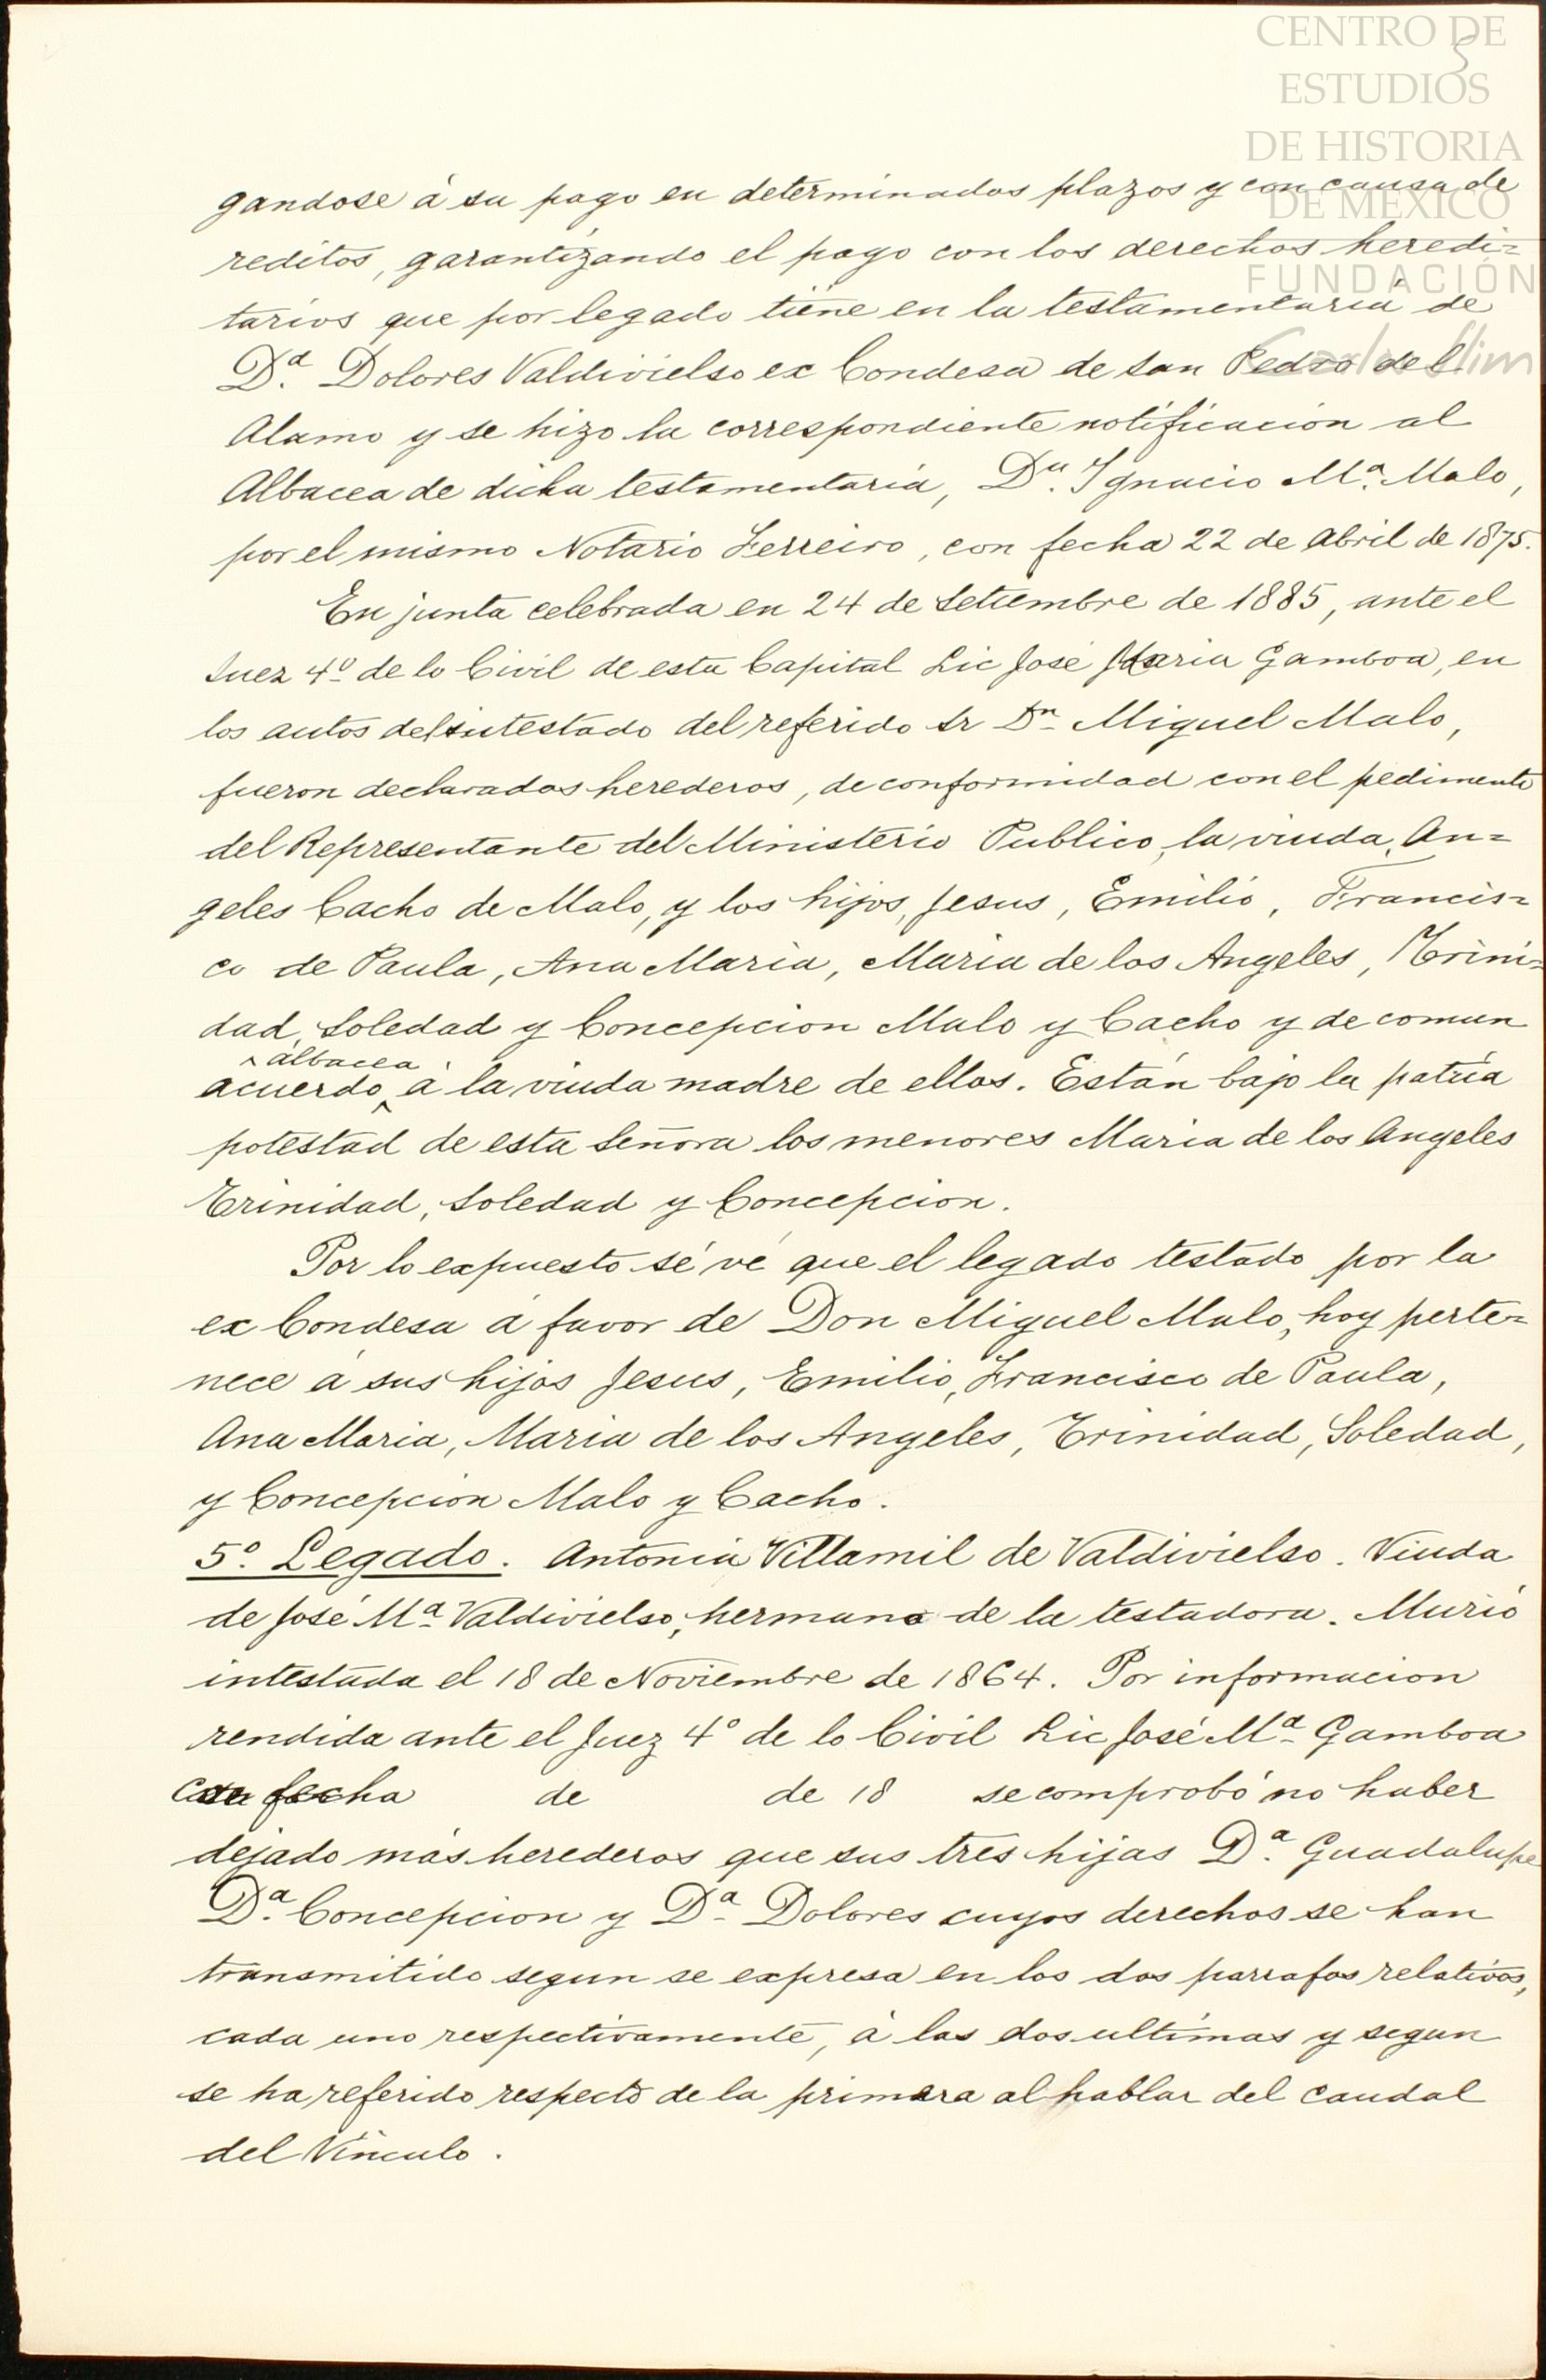 CENTRO DE
ESTUDIOS
DE HISTORIA
DE MÉXICO
FUNDACIÓN
Carlos Slim
5
gandose á su pago en determinados plazos y con causa de
reditos, garantizando el pago con los derechos heredi=
tarios que por legado tiene en la testamentaria de
D.ª Dolores Valdivielso ex Condesa de San Pedro del
Alamo y se hizo la correspondiente notificacion al
Albacea de dicha testamentaria, D.n Ignacio M.ª Malo,
por el mismo Notario Ferreiro, con fecha 22 de Abril de 1875.
En junta celebrada en 24 de Setiembre de 1885, ante el
Juez 4º de lo Civil de esta Capital Lic José Maria Gamboa, en
los autos del intestado del referido Sr Dn Miguel Malo,
fueron declarados herederos, de conformidad con el pedimento
del Representante del Ministerio Publico, la viuda, An=
geles Cacho de Malo, y los hijos, Jesus, Emilio, Francis=
co de Paula, Ana Maria, Maria de los Angeles, Trini=
dad, Soledad y Concepcion Malo y Cacho y de comun
^ albacea
acuerdo ^ á la viuda madre de ellos. Están bajo la patria
potestad de esta Señora los menores Maria de los Angeles
Trinidad, Soledad y Concepcion.
Por lo expuesto sé vé que el legado testado por la
ex Condesa á favor de Don Miguel Malo, hoy perte=
nece á sus hijos Jesus, Emilio, Francisco de Paula,
Ana Maria, Maria de los Angeles, Trinidad, Soledad,
y Concepcion Malo y Cacho.
5º. Legado. Antonia Villamil de Valdivielso. Viuda
de José Mª Valdivielso, hermano de la testadora. Murió
intestada el 18 de Noviembre de 1864. Por informacion
rendida ante el Juez 4º de lo Civil Lic José Mª Gamboa
con fecha de de 18 se comprobó no haber
dejado más herederos que sus tres hijas D.ª Guadalupe
D.ª Concepcion y D.ª Dolores cuyos derechos se han
transmitido segun se expresa en los dos parrafos relativos,
cada uno respectivamente, á las dos ultimas y segun
se ha referido respecto de la primera al hablar del caudal
del Vínculo.